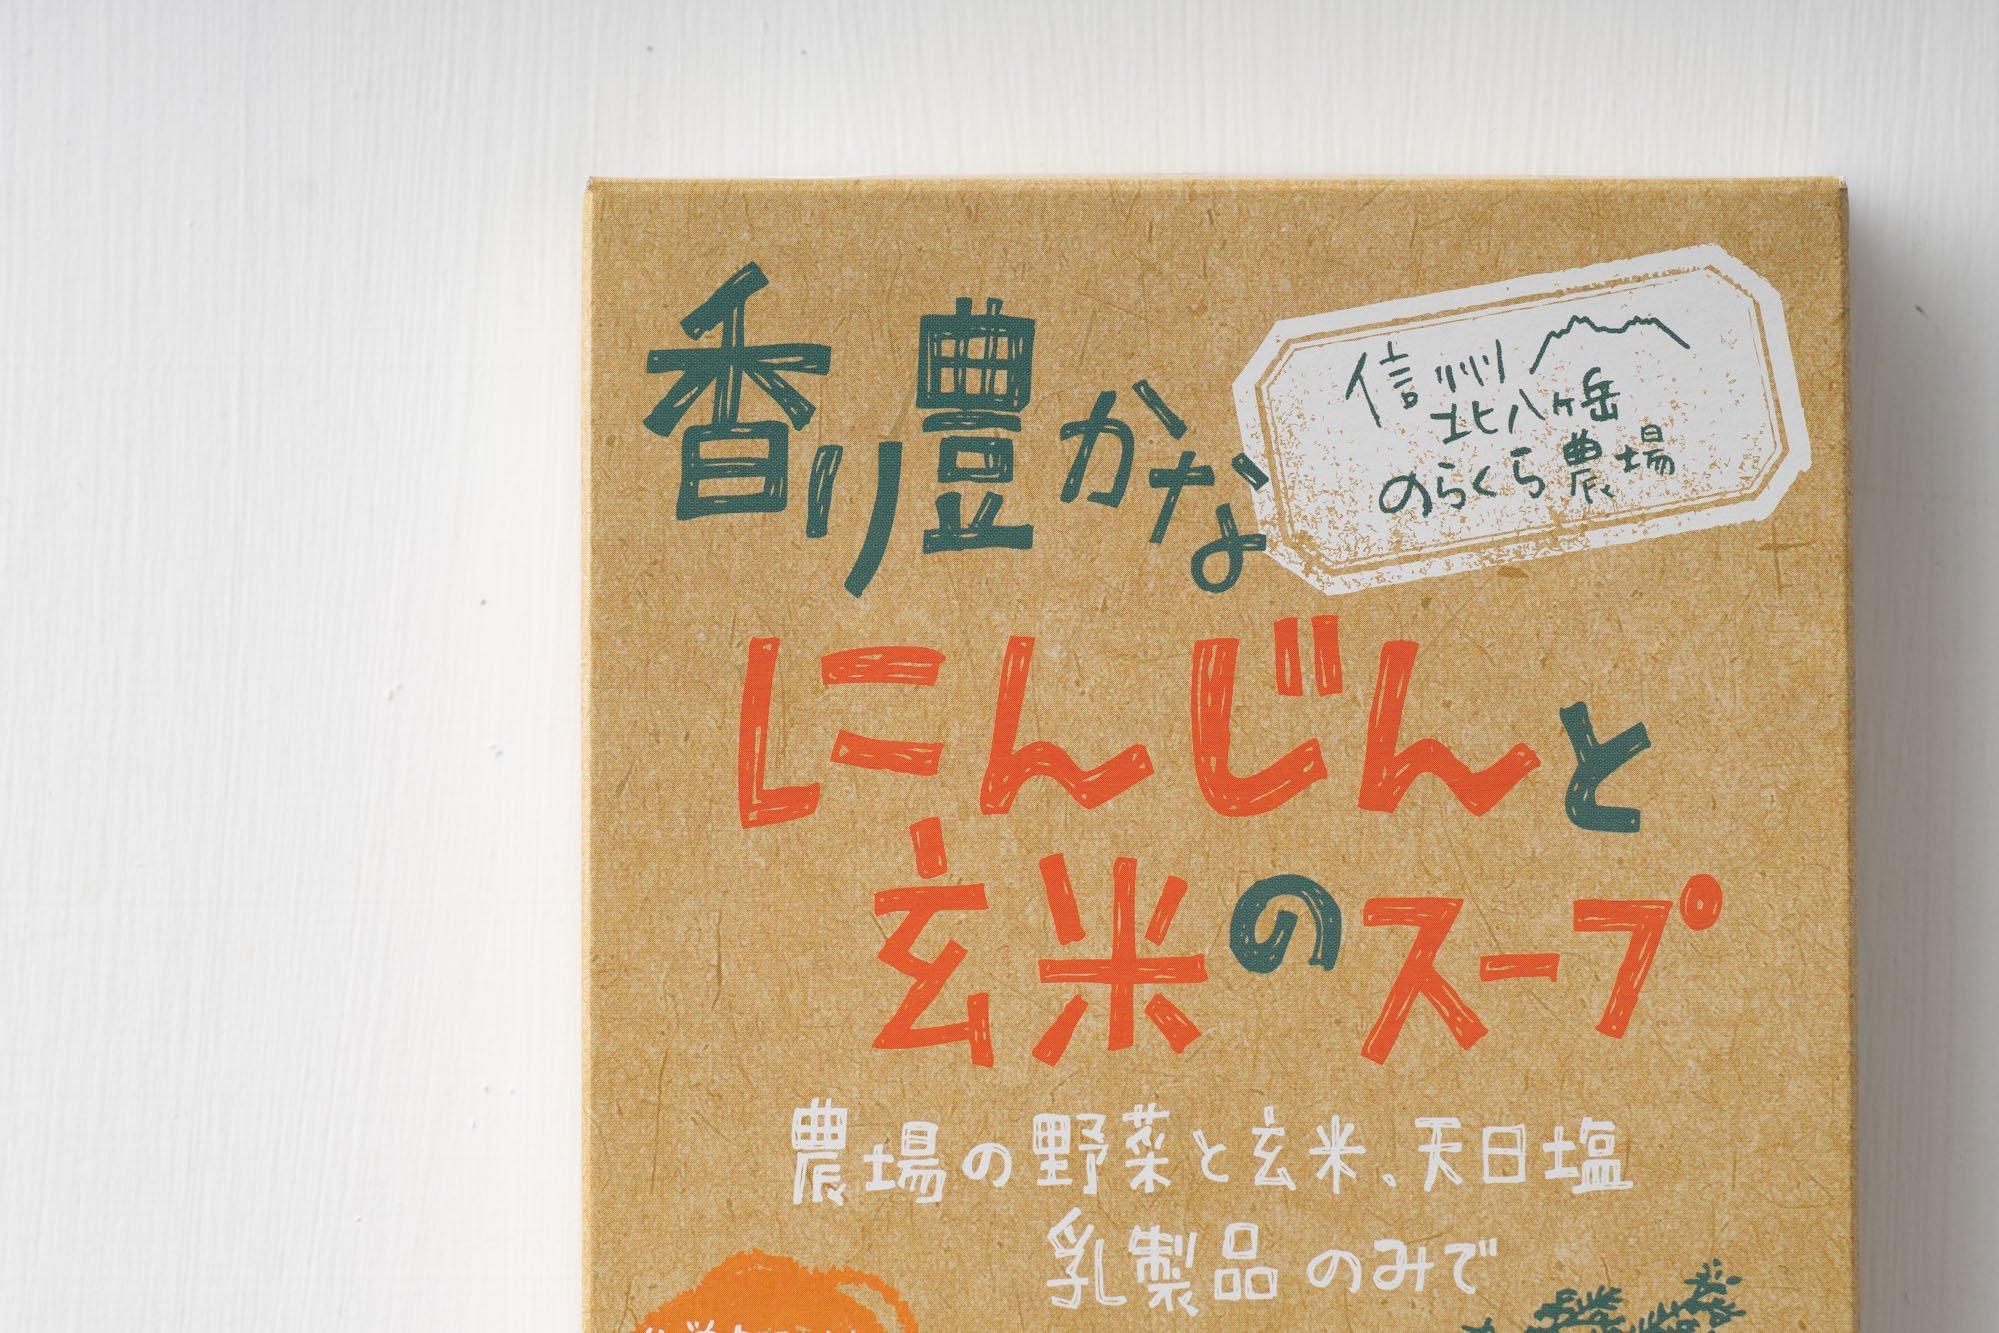 香り豊かな
信州
北八ヶ岳
のらくら農場
にんじんと
玄米のスープ
農場の野菜と玄米、天日塩
乳製品のみで